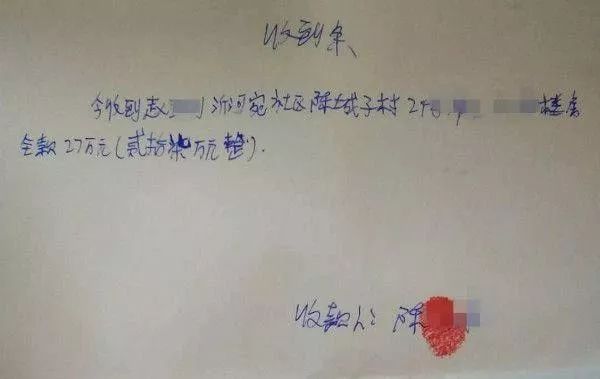 收到条
今收到赵 沂河宛社区陈城子村24 楼房
全款27万元(贰拾柒万元整).
收款人: 陈